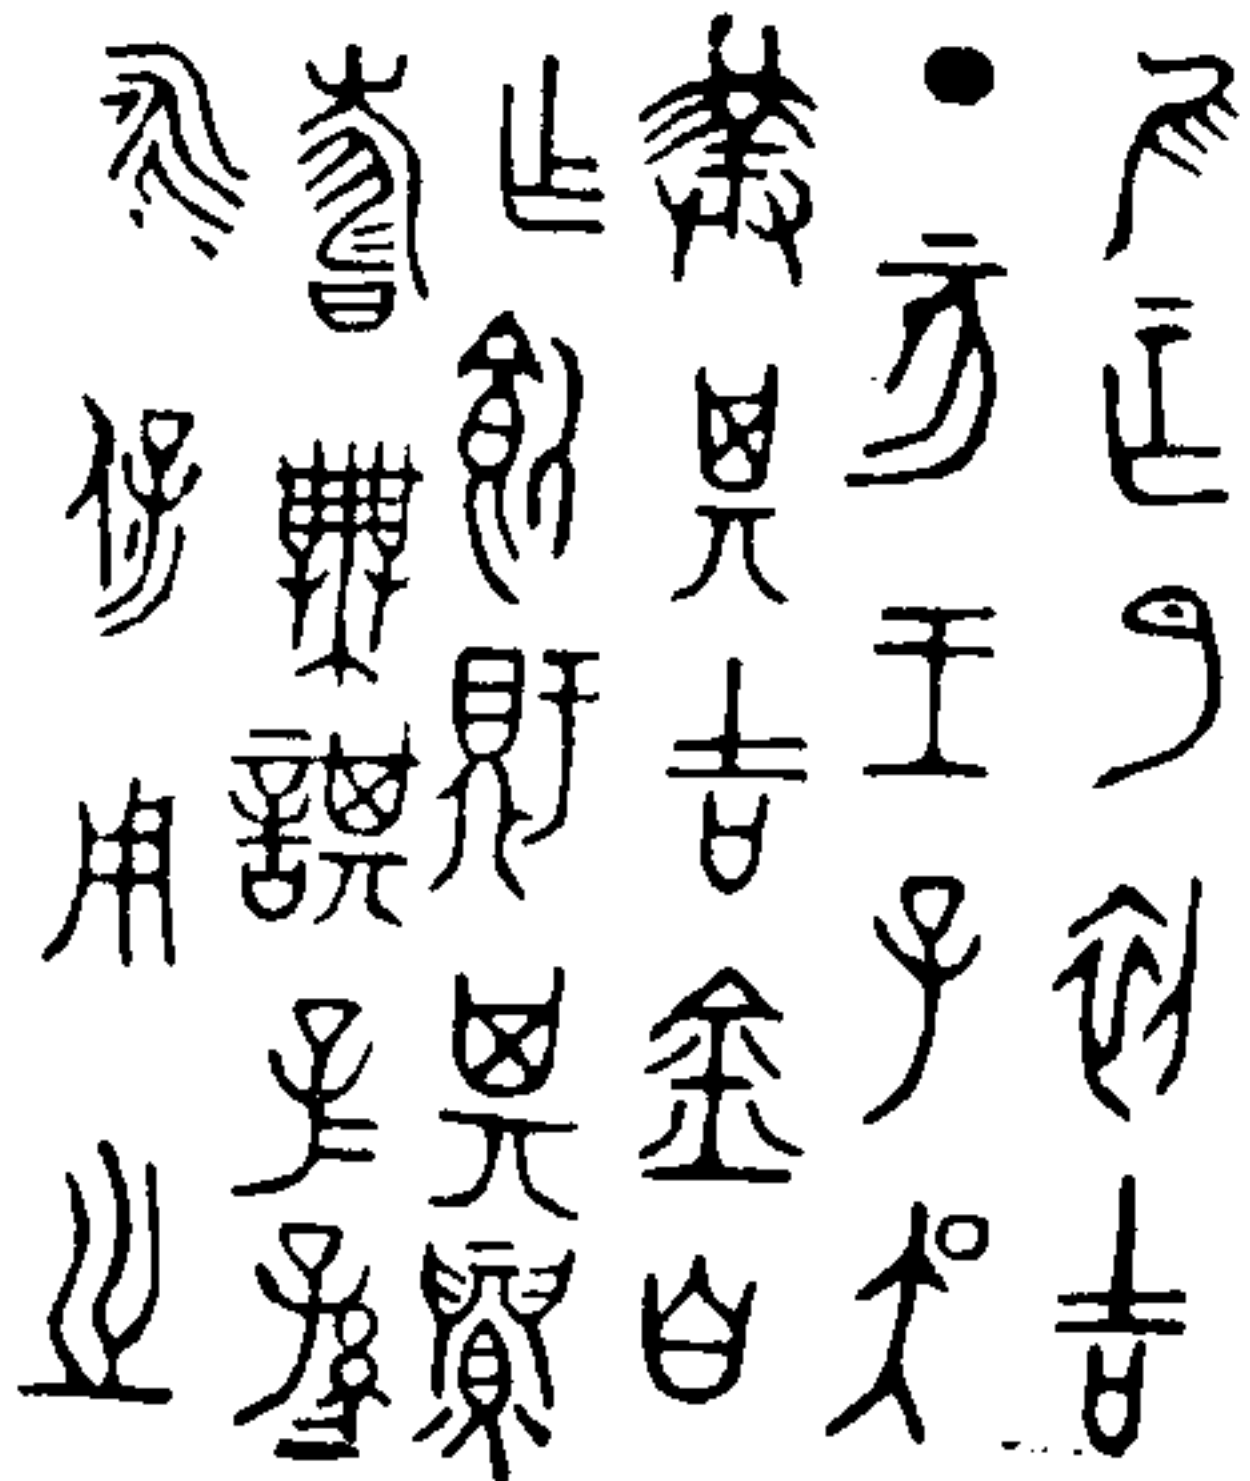 隹正月初吉
丁亥王子吳
擇其吉金自
乍飤鼾其眉
壽無諆子=孫=
永保用之